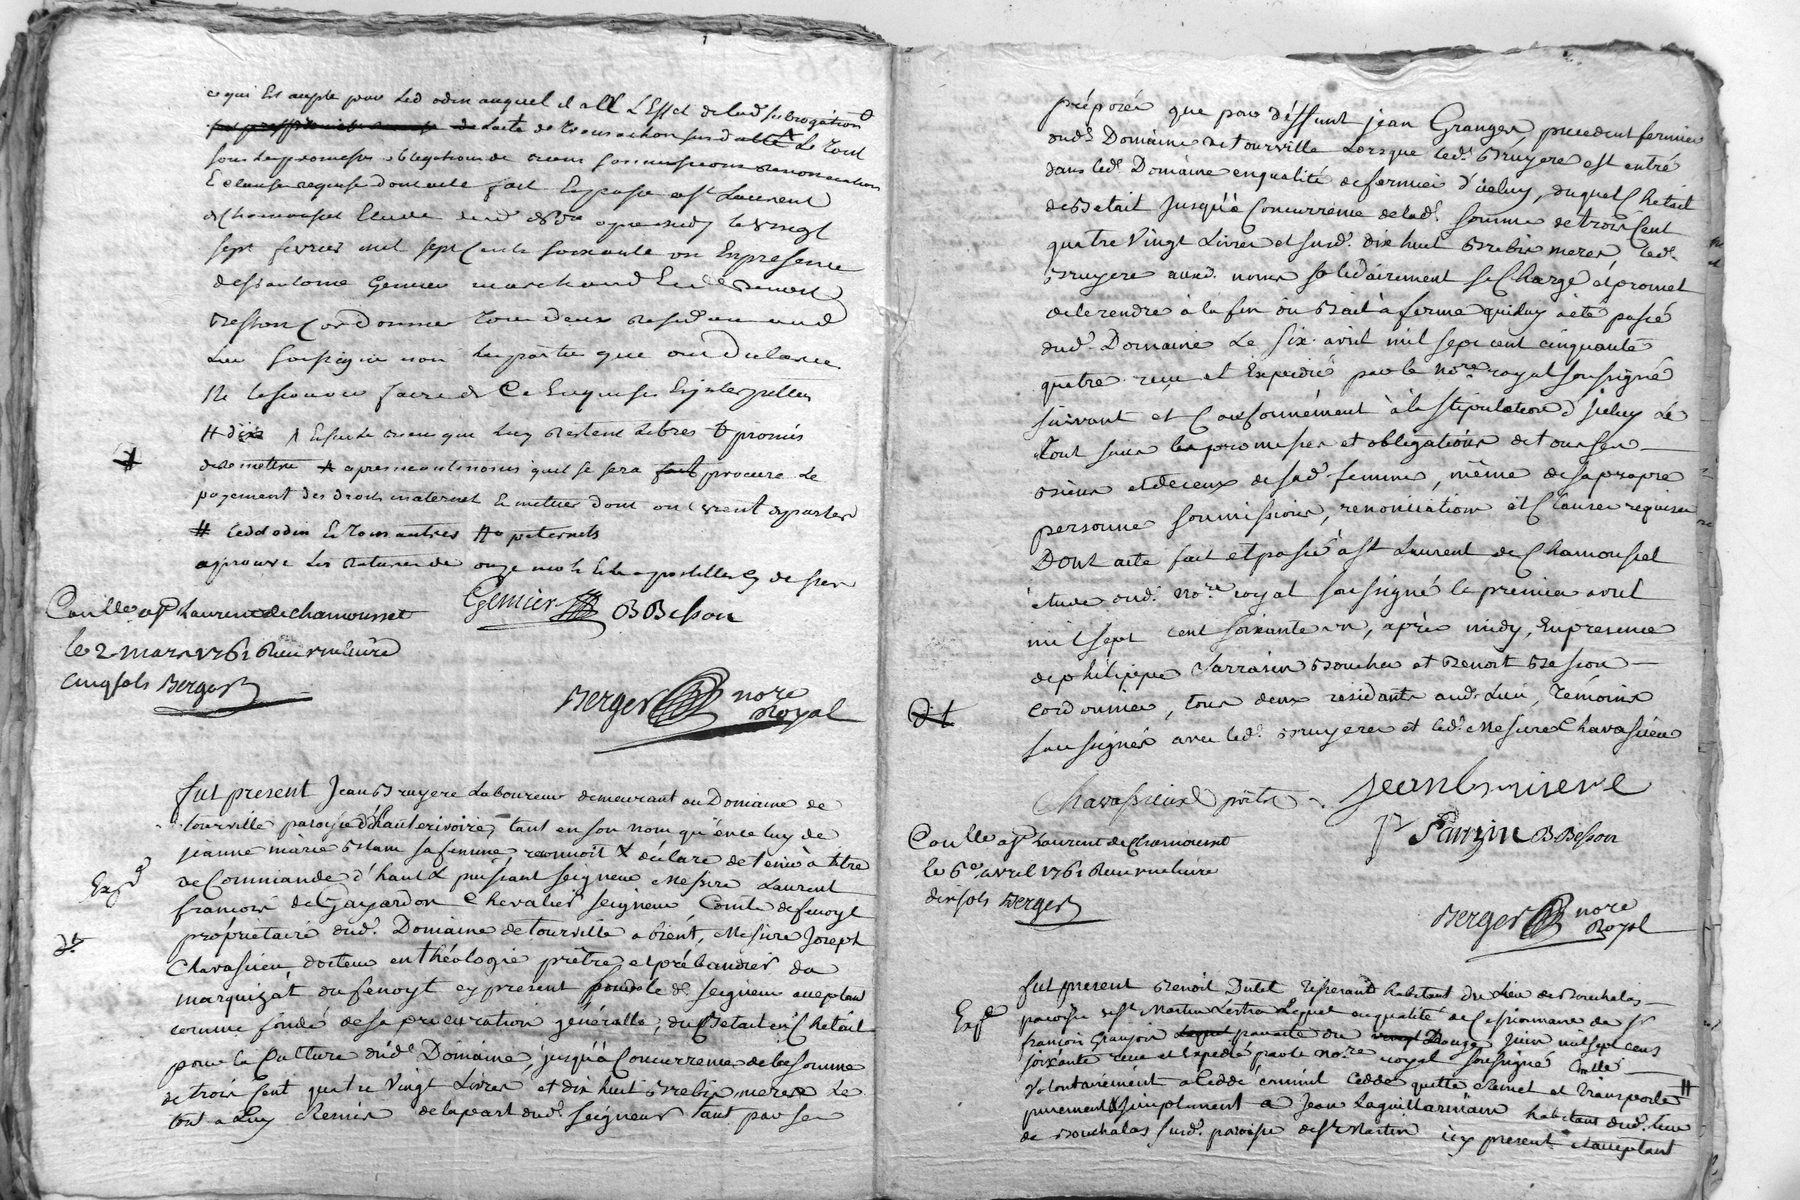 ce qui Est accepté pour led odin auquel il all L'Effet de lad subrogation
de Lacte de sus datté Le tout
sous les promesses obligations de soumissions Renonciations
& clauses requises dont acte fait Et passé a st Laurent
de chamousset Etude dud no.re apres midy le vingt
sept fevrier mil sept cents soixante un En presence
de Genier marchand Et de Benoit
Besson Cordonnier tous deux residens aud
Lieu soussignés non les parties que ont declarés
Ne le scavoir faire de Ce Enquises & interpellés
restent Libres & promis
de remettre apres qu'il se sera procuré le
payement des droits maternels
# led odin & tous autres paternels
aprouvé Les ratures de onze mots
Genier BBesson
Conllé a st Laurent de chamousset
le 2 mars 1761 Reçu
cinq sols Berger
Berger no.re Royal
fut present Jean Bruyere Laboureur demeurant au Domaine de
tourville paroisse d'hauterivoire, tant en son nom qu'en celuy de
jeanne marie sa femme, reconnoit & déclare detenir à titre
Exp.d
de Commande d'haut & puissant seigneur Messire Laurent
françois de Gayardon Chevalier seigneur Comte de fenoyl
propriétaire dud. Domaine de tourville absent, Messire Joseph
Chavassieu docteur en théologie prêtre et prébandier du
marquizat du fenoyl cy present pour led. seigneur acceptant
comme fondé de sa procuration générallé, du Betail en Chetail
pour la Culture dud. Domaine, jusqu'à Concurrence de la somme
de trois Cent quatre vingt Livres et dix huit Brebis meres Le
tout a Luy Remis de la part dud. seigneur tant par ses
préposés que par déffunt jean Granger, precedent fermier
dud. Domaine de tourville Lorsque led. Bruyere est entré
dans led. Domaine en qualité de fermier d'icelluy, duquel Chetail
de Betail jusqu'à Concurrence de lad. somme de trois Cent
quatre vingt Livres et susd. dix huit Brebis meres led.
Bruyere auxd. noms solidairement se Charge et promet
de le rendre à la fin du Bail à ferme qui luy a été passé
dud. Domaine Le six avril mil sept cent cinquante
quatre reçu et Expédié par le no.re royal soussigné
suivant et Conformément à la stipulation d'iceluy Le
tout sous les promesses et obligations de tous ses
Biens et de ceux de sad. femme, même de sa propre
personne soumissions, renonciations et Clauses requises
Dont acte fait et passé à st Laurent de Chamousset
étude dud. no.re royal soussigné le premier avril
mil sept cent soixante un, après midy, En presence
de philippe Sarrasin Boucher et Benoit Besson
cordonnier, tous deux residants aud. Lieu, témoins
soussignés avec led. Bruyere et led. Messire Chavassieu
Chavassieux prêtre jean bruiere
Sarrzin BBesson
Conllé a st Laurent de Chamousset
le 6e avril 1761 Reçu
dix sols Berger
Berger no.re Royal
fut present Benoit Dutel habitant du Lieu de Bouchalas
Exp.d
paroisse de st Martin Lestra Lequel en qualité de Cessionnaire de sr
françois Granjon par acte du Douze juin mil sept cens
soixante reçu et Expedié par le no.re royal soussigné Conllé
volontairement a Ceddé comme Cedde quitte Remet et transporte
purement & simplement a Jean Laguillarmain habitant dud. Lieu
de Bouchalas susd. paroisse de st Martin icy present et acceptant